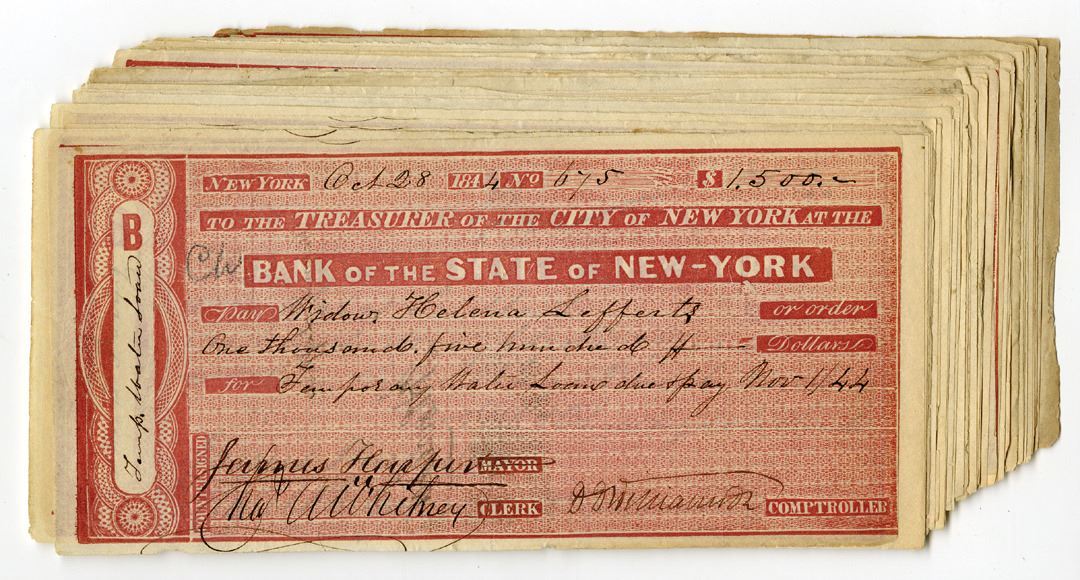 NEW YORK Oct 28 1844 No 675 $ 1.500.~
TO THE TREASURER OF THE CITY OF NEW YORK AT THE
CW
BANK OF THE STATE OF NEW-YORK
Pay Widow Helena Lefferts or order
One thousand, five hundred Dollars
for Temporary Water Loan due & pay Nov 1/44
B
Temp. Water Loan
COUNTERSIGNED
James Harper MAYOR
CLERK
COMPTROLLER